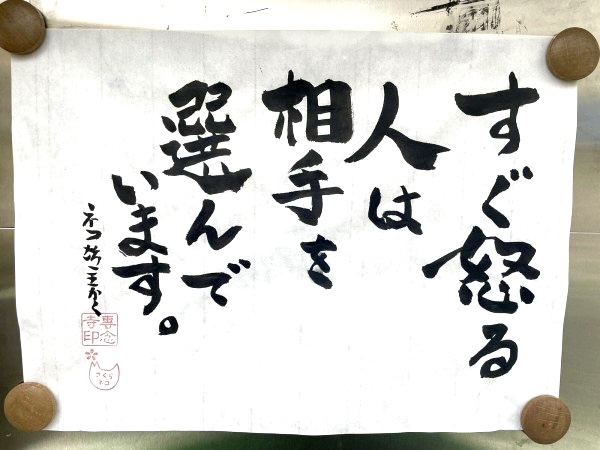 すぐ怒る
人は
相手を
選んで
います。
ネコ坊主かく
専念
寺印
さくら
ネコ